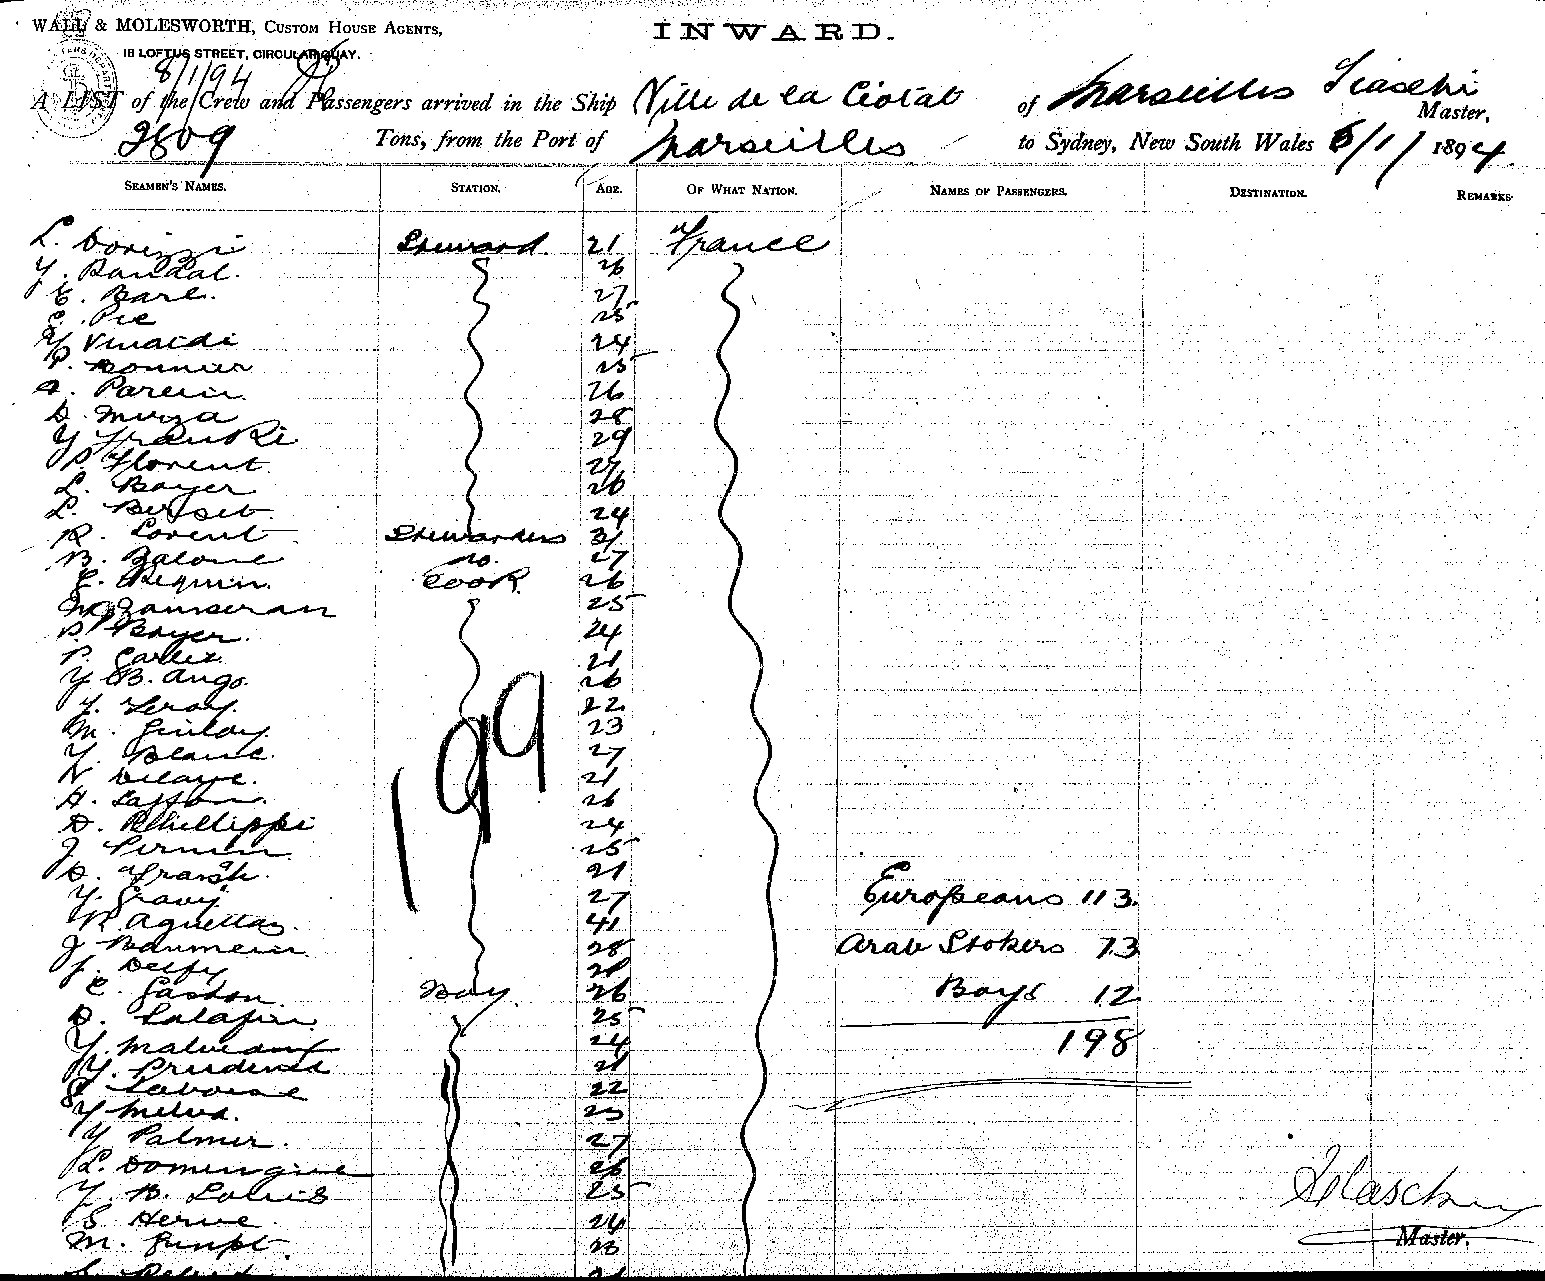 WALL & MOLESWORTH, CUSTOM HOUSE AGENTS,
INWARD.
18 LOFTUS STREET, CIRCULAR QUAY.
8/1/94
A LIST of the Crew and Passengers arrived in the Ship Ville de la Ciotat of Marseilles Master,
2809 Tons, from the Port of Marseilles to Sydney, New South Wales 6/1/ 1894.
SEAMEN'S NAMES. STATION. AGE. OF WHAT NATION. NAMES OF PASSENGERS. DESTINATION. REMARKS.
L. Dorizzi Steward. 21 France
Y. Randal. 26
E. Bare. 27
C. Pie 25
Y Vinaldi 24
P. Bonnier 25
A. Parein. 26
D. Murza 28
Y Franki 29
P. Florent 27
L. Boyer 26
L. 24
R. Lorent Stewardess 31
B. Balone do. 27
E. Requin. Cook 26
M. 25
P. Boyer. 24
P. 21
Y B. Ango. 26
Y. Leroy. 22
M. Ginloy. 23
Y. Blanc. 27
N Delaye. 21
H. Laffon. 26
D. Phillippi 24
J. 25
D. 21
Y. Gravy 27 Europeans 113
R 41
J 28 Arab Stokers 73
J. Delfy 21
C. Gaston. Boy. 26 Boys 12
D. Lalafin. 25
Y. 24 198
Y. Prudent 21
Laboise 22
Y Melva. 23
Y Palmer. 27
L. Domengine 26
Y. B. Louis 25
S Herve 24
M. 23
199
Master.